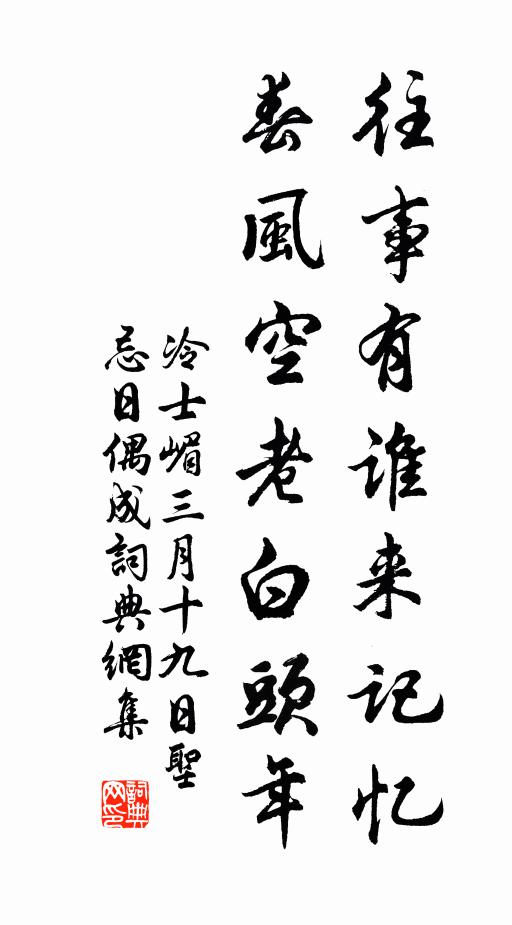 往事有谁来记忆
春風空老白頭年
冷士嵋三月十九日聖
忌日偶成詞典網集
詞典
网印